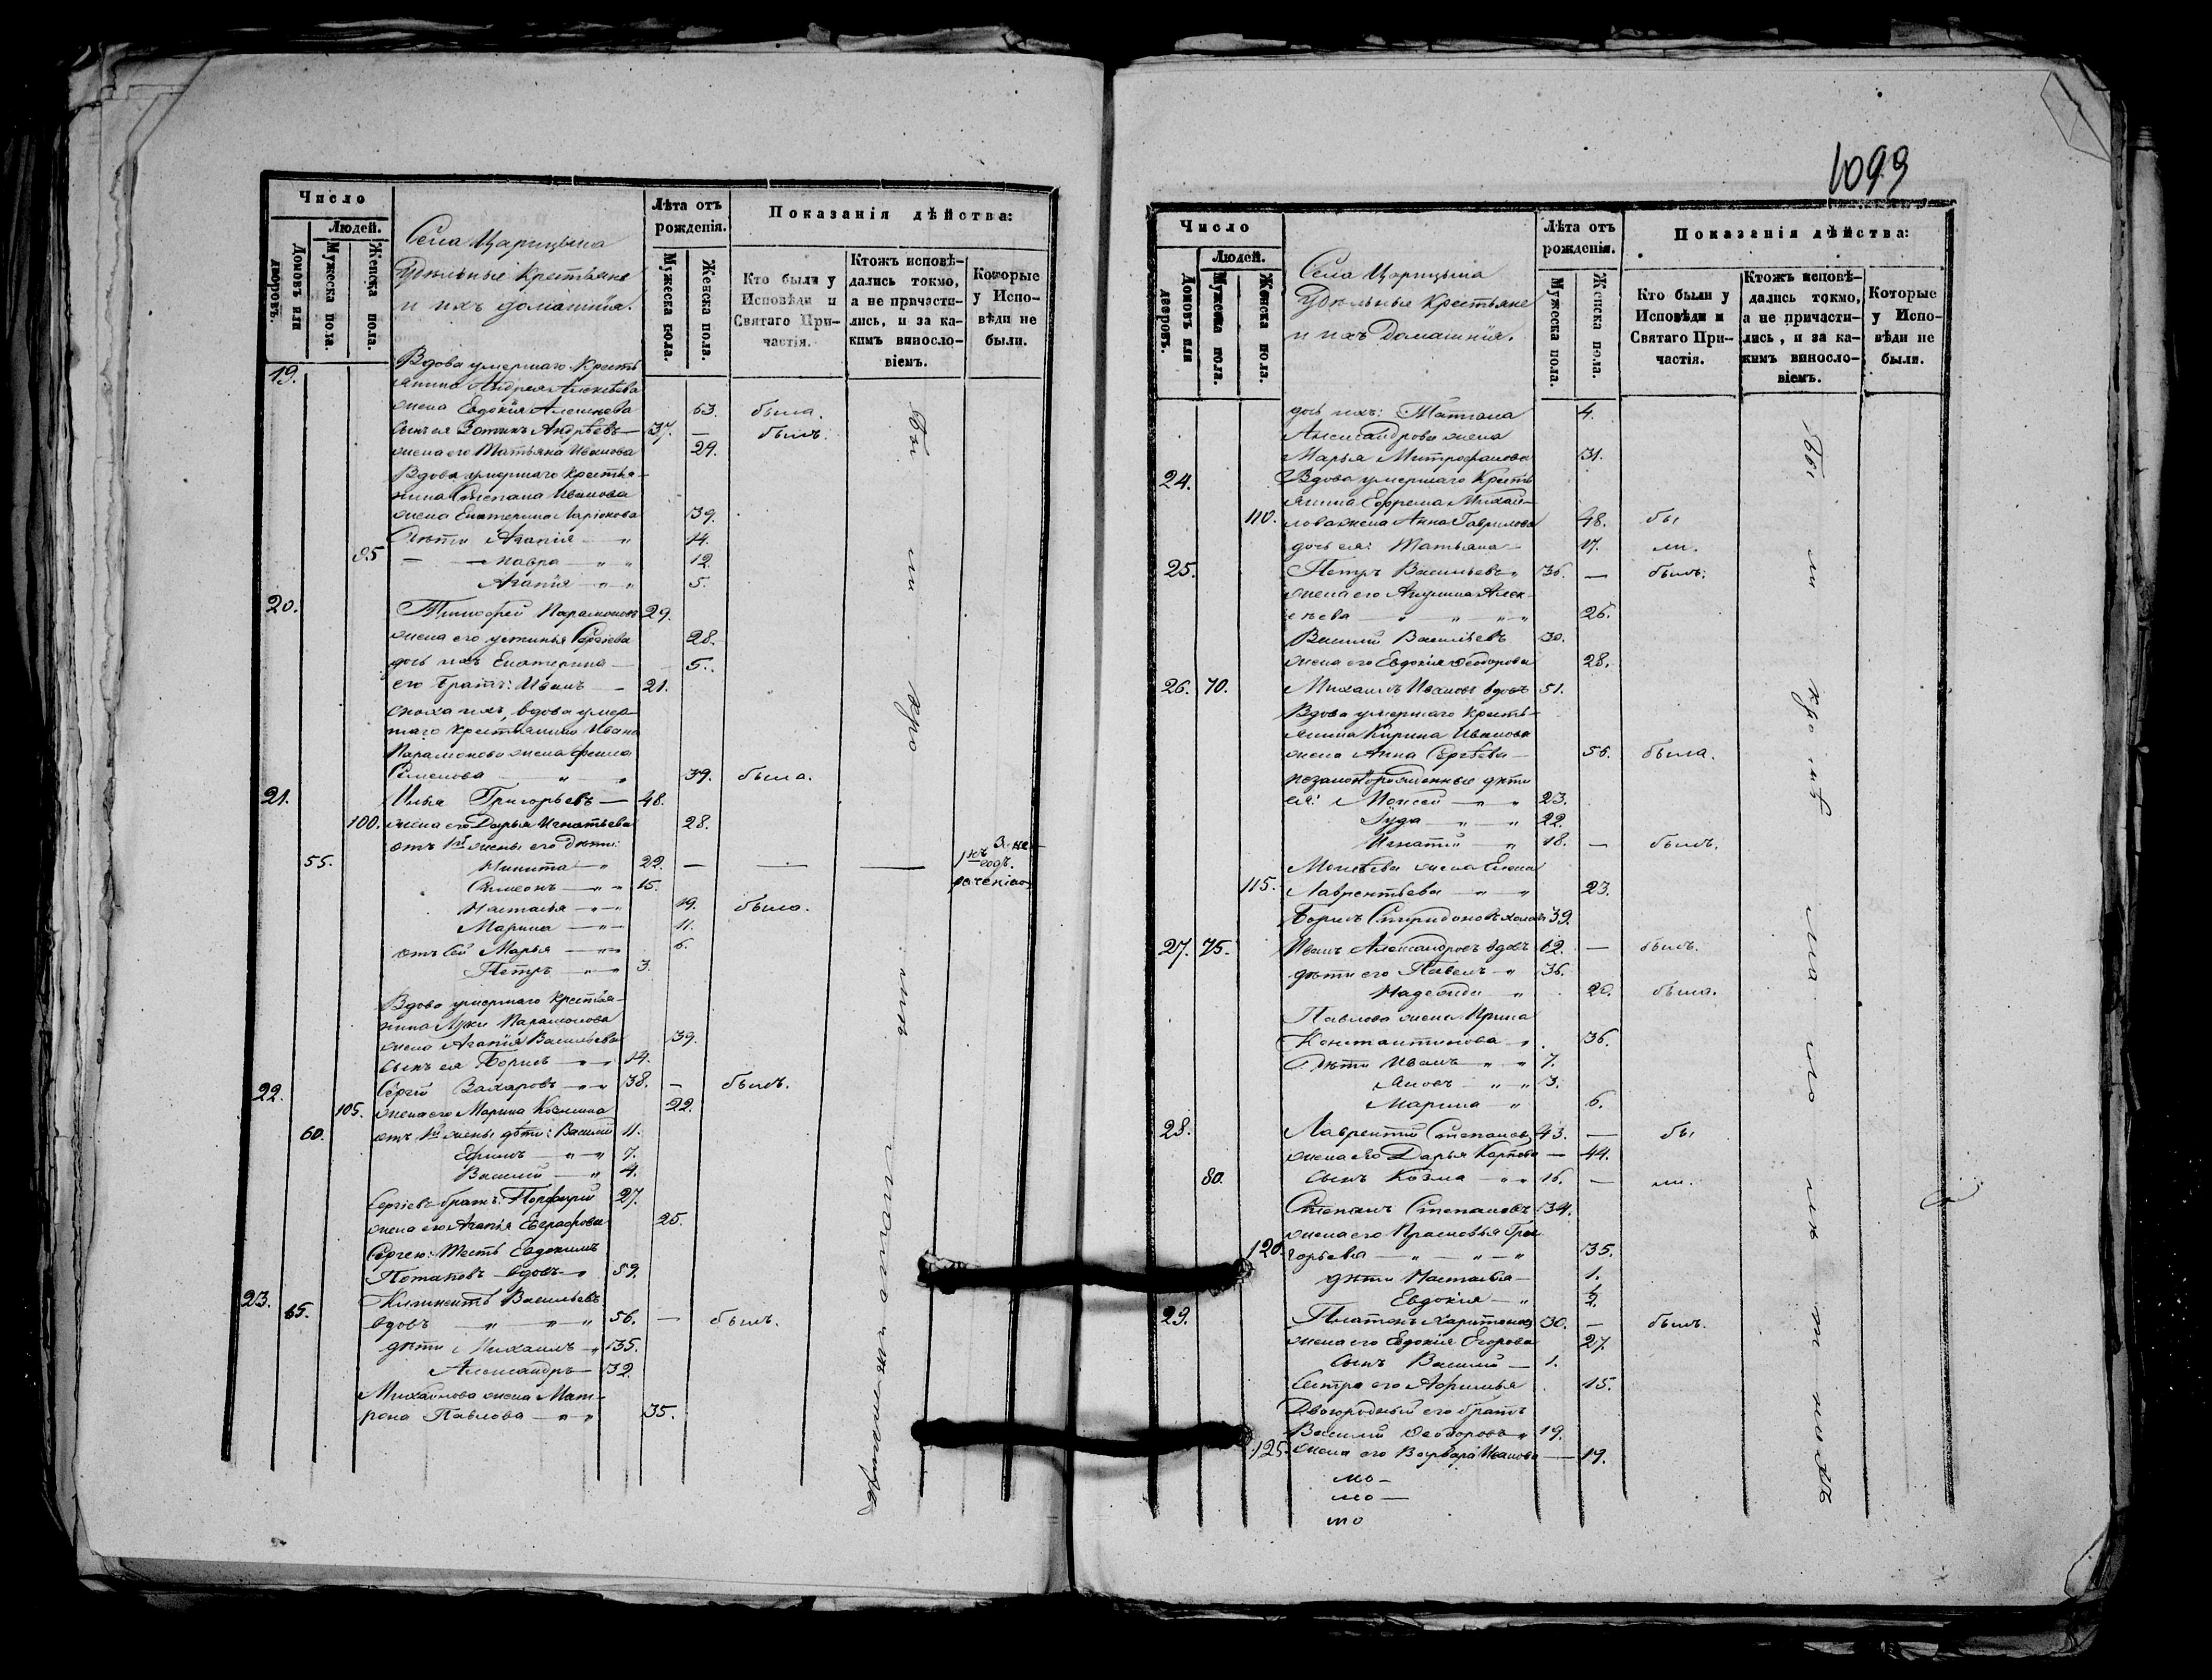 Число
Людей.
Домовъ или дворовъ.
Мужеска пола.
Женска пола.
Села Царицына
Удѣльные Крестьяне
и ихъ домашнія.
Лѣта отъ рожденія.
Мужеска пола.
Женска пола.
Показанія дѣйства:
Кто были у Исповѣди и Святаго Причастія.
Ктожъ исповѣдались токмо, а не причастились, и за какимъ винословіемъ.
Которые у Исповѣди не были.
19. Вдова умершаго Кресть
янина Андрея Алексѣева
жена Евдокія Алексѣева 63. была.
сынъ ея Зотикъ Андрѣевъ — 37. — былъ.
жена его Татьяна Иванова 29.
Вдова умершаго крестья-
нина Степана Иванова
жена Екатерина Ларіонова 39.
Дѣти Агапія — " 14.
95 — Мавра — " " 12.
Агапія — " " 5.
20. Тимофей Парамоновъ 29.
жена его Устинья Сергіева 28.
дочь ихъ Екатерина — 5.
его братъ: Иванъ — 21.
сноха ихъ, вдова умер-
шаго крестьянина Ивана
Парамонова жена
Симеонова " " 39. была.
21. Илья Григорьевъ — 48.
100. жена его Дарья Игнатьева 28.
отъ 1й жены его дѣти:
55. Никита — " 22. — — — 1й годъ.
Симеонъ — " " 15.
Настасья — " — 19. была.
Марина — " — 11.
отъ сей Марья — " — 6.
Петръ — " — 3.
Вдова умершаго крестья-
нина Луки Парамонова
жена Агапія Васильева 39.
сынъ ея Борисъ — " — 14.
22. Сергій Захаровъ — " — 38. — былъ.
105. жена его Марина Козмина 22.
60. отъ 1й жены дѣти: Василій 11.
Ефимъ — " — " 7.
Василій — " 4.
Сергіевъ братъ: Порфирій 27.
жена его Агапія Евграфова 25.
Сергею: Тесть Евдокимъ
Потаповъ вдовъ — " 59.
23. 65. Климентъ Васильевъ
вдовъ — " — " — " 56. — былъ.
дѣти Михаилъ — " 35.
Александръ — 32.
Михайлова жена Мат-
рона Павлова — " — " 35.
1099
Число
Людей.
Домовъ или дворовъ.
Мужеска пола.
Женска пола.
Села Царицына
Удѣльные Крестьяне
и ихъ Домашнія.
Лѣта отъ рожденія.
Мужеска пола.
Женска пола.
Показанія дѣйства:
Кто были у Исповѣди и Святаго Причастія.
Ктожъ исповѣдались токмо, а не причастились, и за какимъ винословіемъ.
Которые у Исповѣди не были.
дочь ихъ: Татіана 4.
Александрова жена
Марья Митрофанова 31.
24. Вдова умершаго Кресть
янина Ефрема Михай-
110. лова жена Анна Гаврилова 48. бы
дочь ея: Татьяна — 17. ли.
25. Петръ Васильевъ " 36. — былъ.
жена его Акулина Алек-
сѣева — " " " " 26.
Василій Васильевъ 30.
жена его Евдокія Ѳеодорова 28.
26. 70. Михаилъ Ивановъ вдовъ 51.
Вдова умершаго Кресть-
янина Кирила Иванова
жена Анна Сергѣева — 56. была.
незаконорожденные дѣти
ея: Моисей — " " 23.
Іуда — " — " 22.
Игнатій — " 18. — былъ.
Моисѣева жена Елена
115. Лаврентьева — " — " 23.
Борисъ Спиридоновъ 39.
27. 75. Иванъ Александровъ вдовъ 62. — былъ.
дѣти его Павелъ — " 36.
Надежда — " 20. была.
Павлова жена Ирина
Константинова — " 36.
Дѣти Иванъ — " " 7.
Яковъ " " 3.
Марина — " 6.
28. Лаврентій Степановъ 43. — бы
жена его Дарья Карпова — 44.
80. сынъ Козма — " " 16. — ли.
Степанъ Степановъ 34.
жена его Прасковья Гри
120. горьева — " — " — " 35.
дѣти Настасья — 1.
Евдокія — "
29. Платонъ Харитоновъ 30. — былъ.
жена его Евдокія Егорова 27.
сынъ Василій — 1.
Сестра его Афимья 15.
Двоюродный его братъ
Василій Ѳеодоровъ " 19.
125. жена его Варвара Иванова — 19.